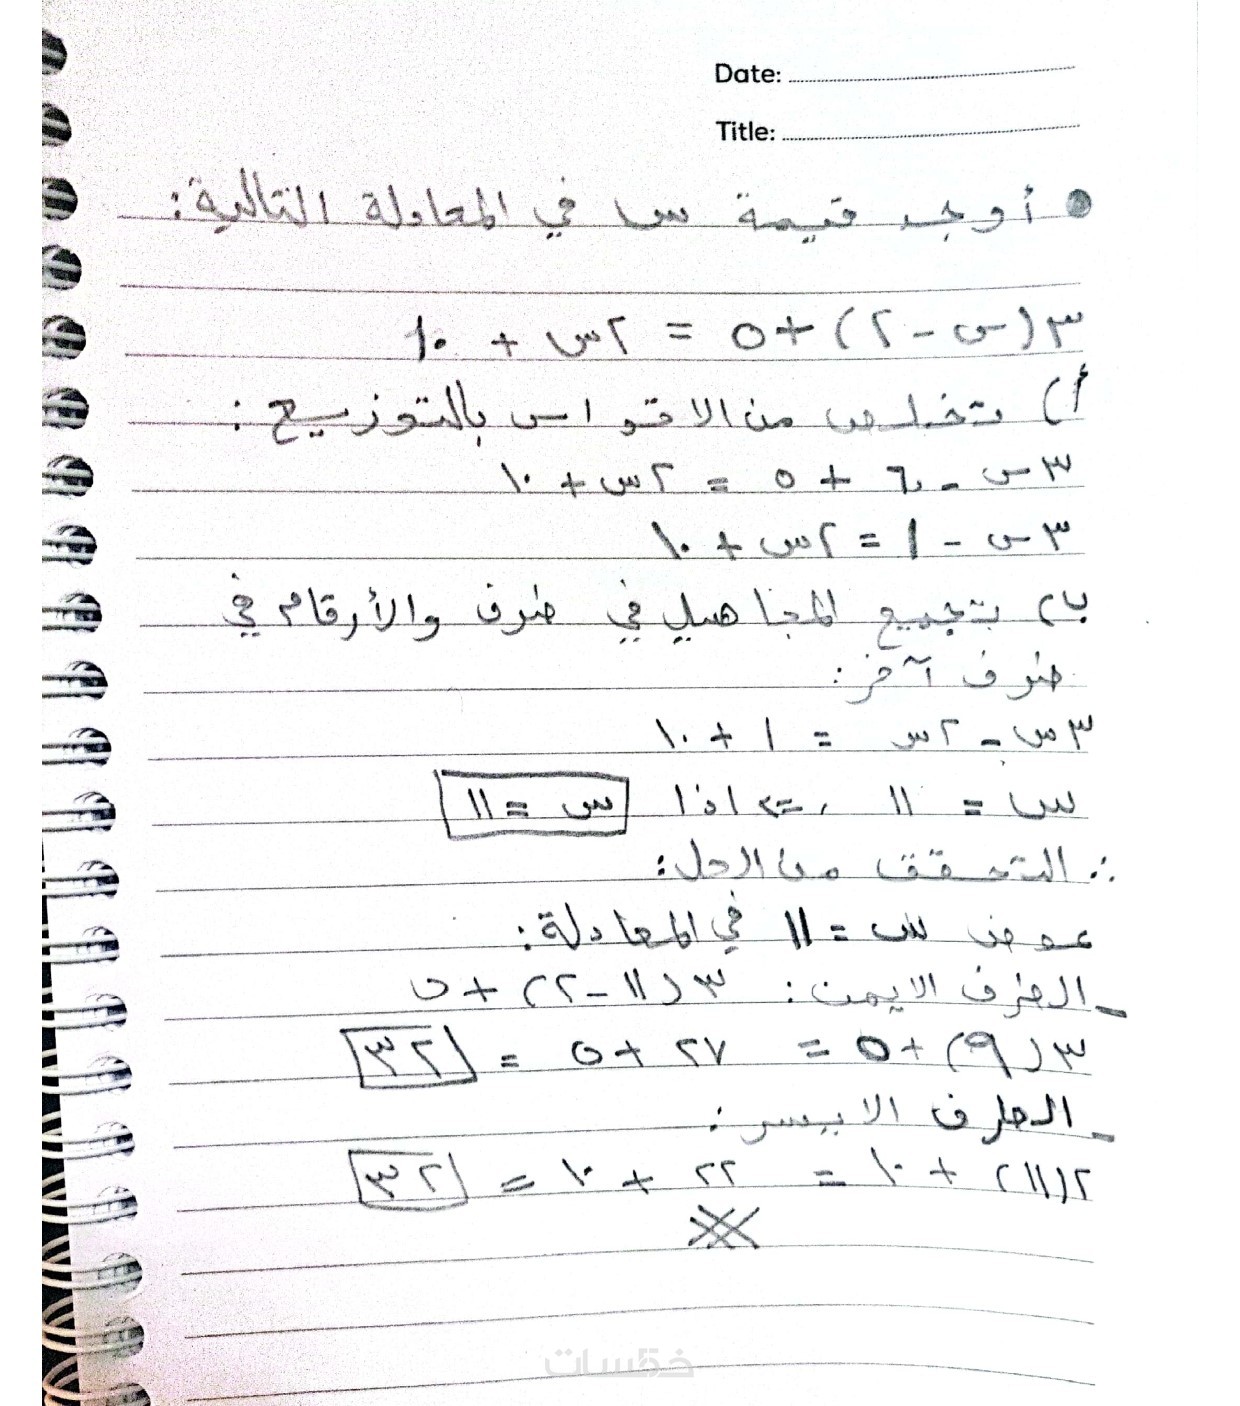 Date:
Title:
أوجد قيمة س في المعادلة التالية:
٣(س - ٢) + ٥ = ٢س + ١٠
أ) تخلص من الاقواس بالتوزيع:
٣س - ٦ + ٥ = ٢س + ١٠
٣س - ١ = ٢س + ١٠
ب) تجميع المجاهيل في طرف والأرقام في
طرف آخر:
٣س - ٢س = ١ + ١٠
س = ١١ ⇐ اذا س = ١١
∴ التحقق من الحل:
عوض س = ١١ في المعادلة:
- الطرف الايمن: ٣(١١ - ٢) + ٥
٣(٩) + ٥ = ٢٧ + ٥ = ٣٢
- الطرف الايسر:
٢(١١) + ١٠ = ٢٢ + ١٠ = ٣٢
خمسات